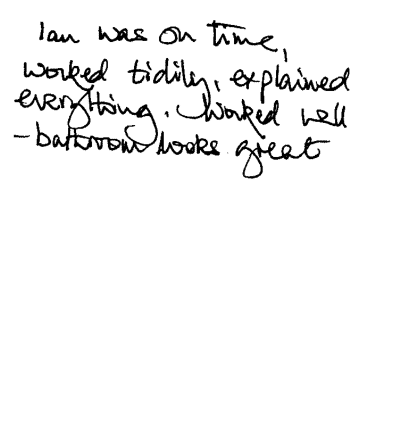 Ian was on time,
worked tidily, explained
everything. Worked well
- bathroom looks great